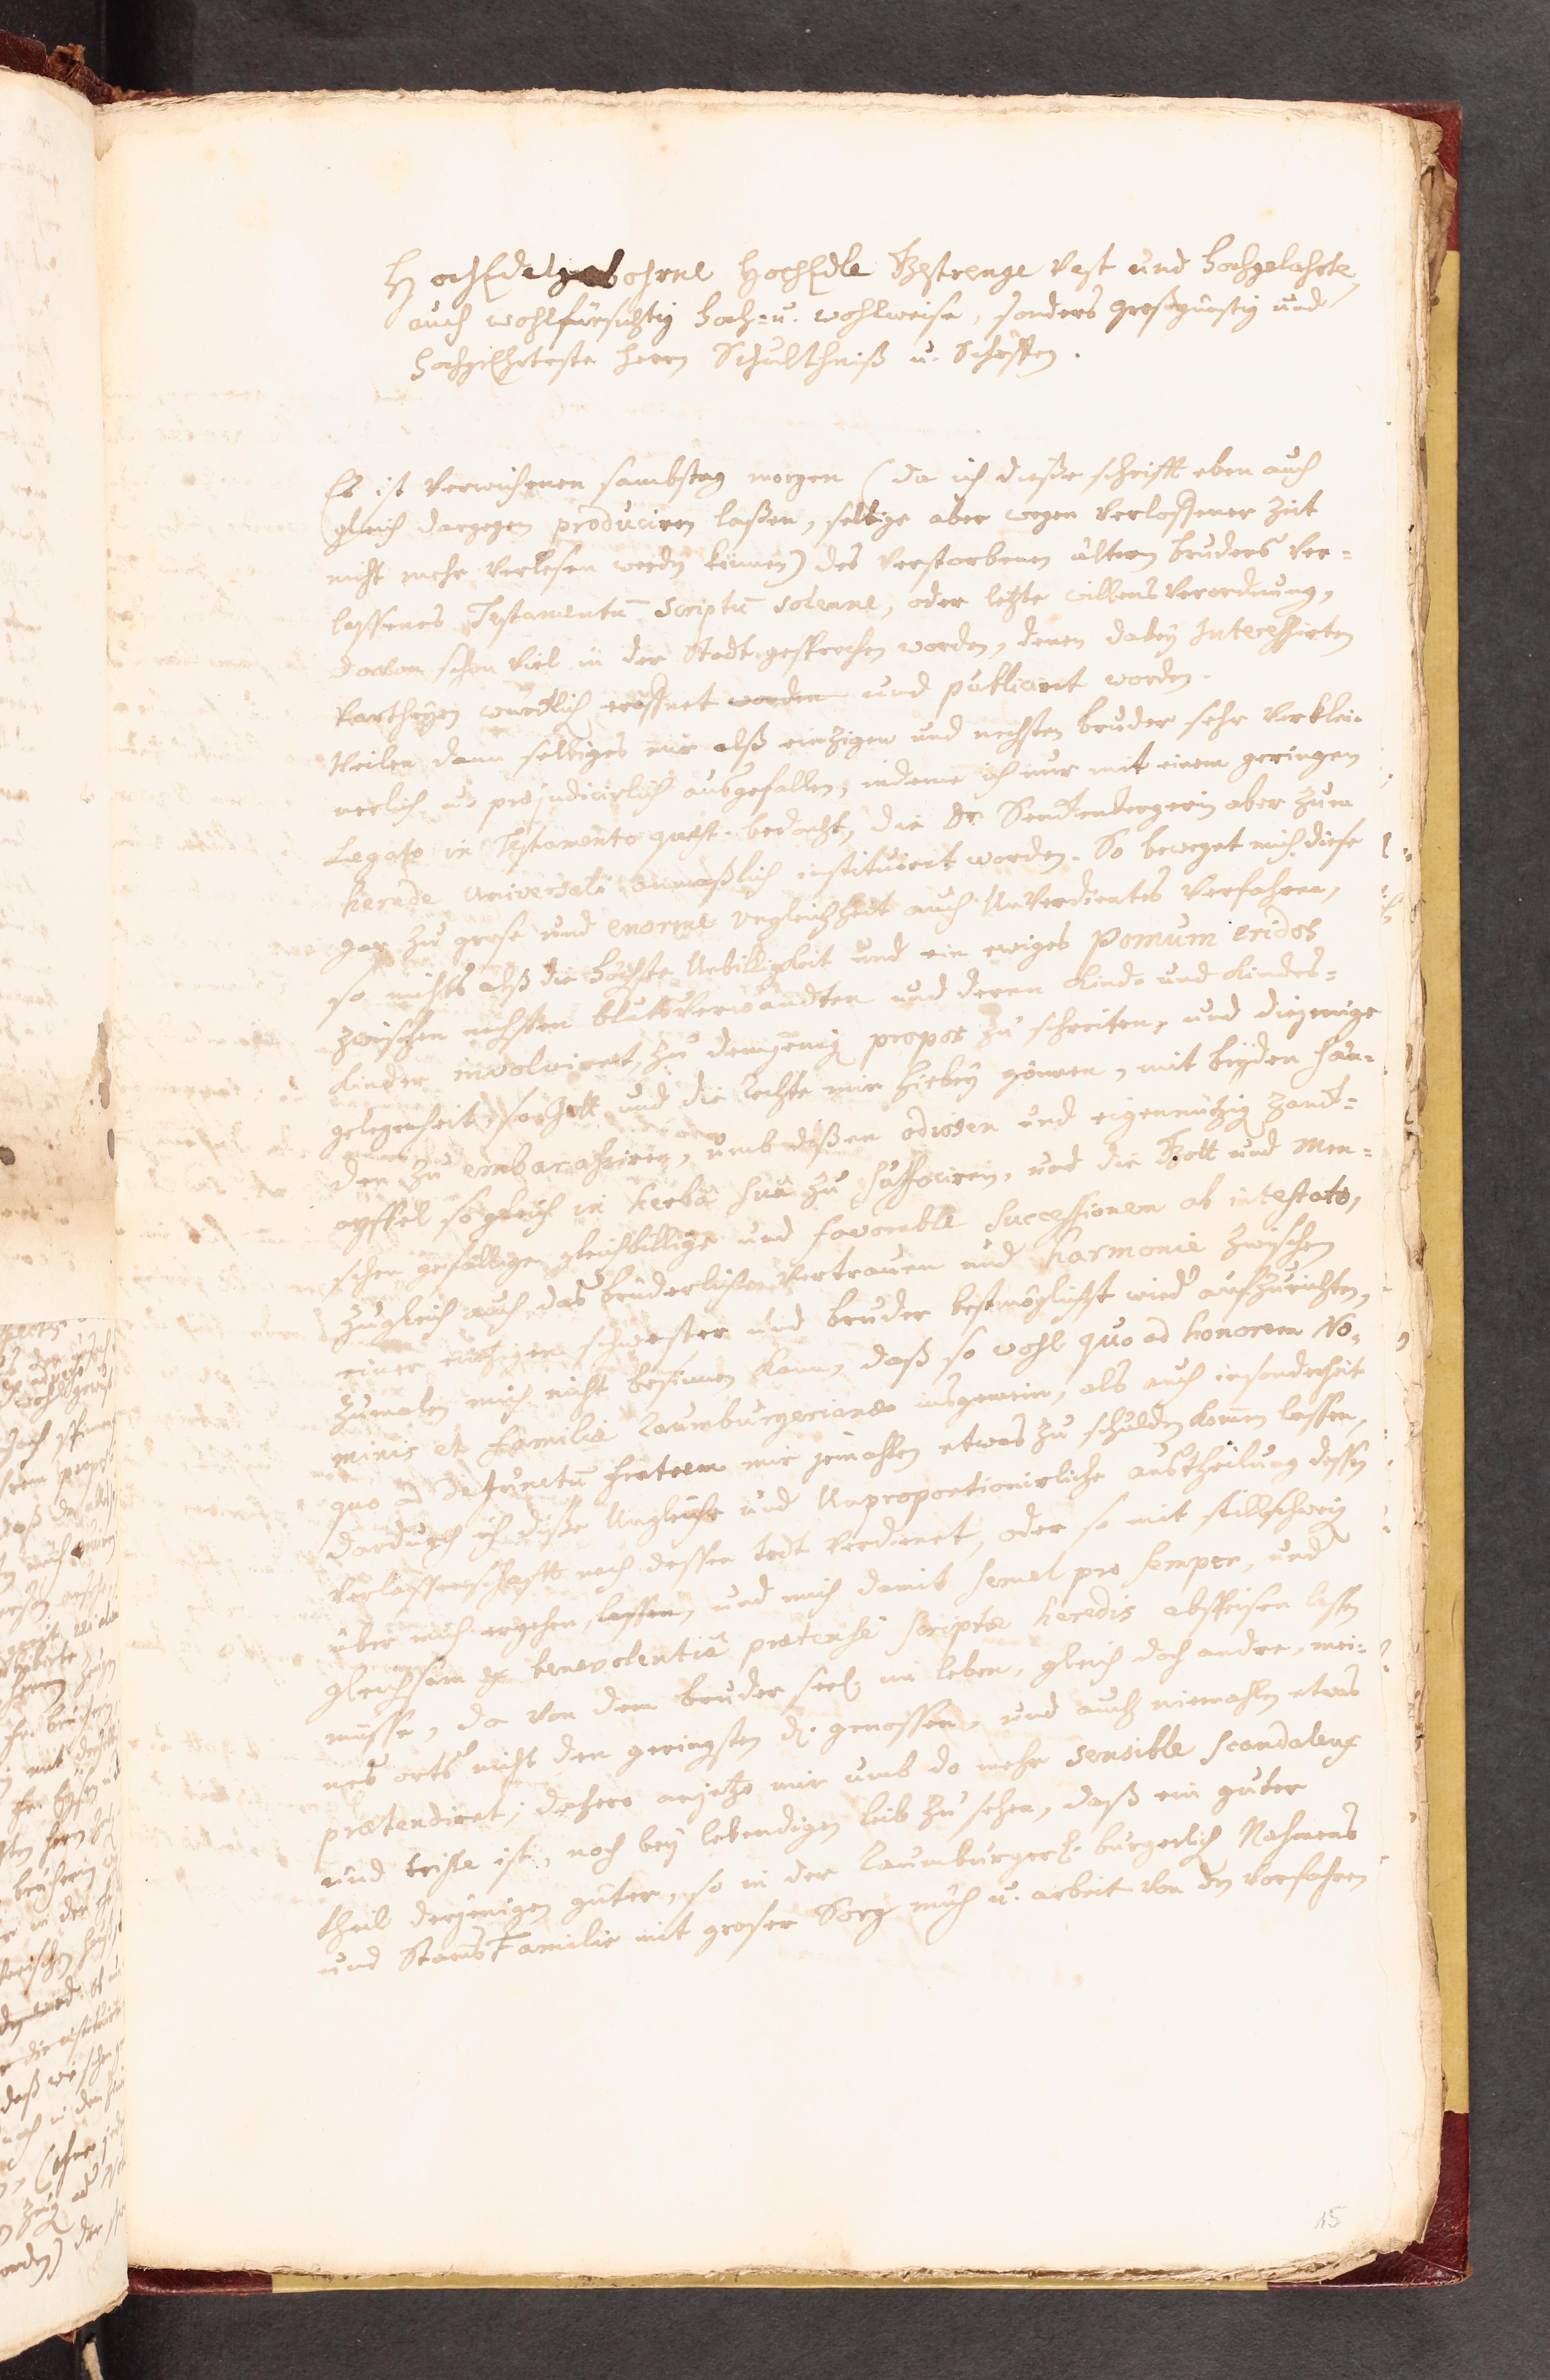 HochEdelgebohrne HochEdle Gestrenge Vest und Hochgelahrte,
auch wohlfürsichtig hoch= u. wohlweise, sonders großgünstig und
hochgeEhrteste Herrn Schultheiß u. Schöffen.
Es ist verwichenen sambstag morgen (da ich dieße schrifft eben auch
gleich dargegen produciren laßen, selbige aber wegen verloffener zeit
nicht mehr verlesen werdn können) des verstorbenen ältern bruders ver=
lassenes Testamentū scriptū solenne, oder letzte willens verordnung,
davon schon viel in der Stadt gesprochen worden, denen dabey Interessirten
Partheyen würcklich eröffnet worden und publicirt worden.
Weilen dann selbiges mir alß einzigen und nechsten bruder sehr verklei=
nerlich u. præjudicirlich ausgefallen, indeme ich nur mit einem geringen
Legato in Testamento quæst. bedacht, die Fr. Senckenbergerin aber zum
herede universali anmaßlich instituirt worden. So beweget mich diese
gar zu grose und enorme ungleichheit auch Unverdientes verfahren,
so nichts alß die höchste Unbilligkeit und ein ewiges Pomum eridos
zwischen nechsten blutsverwandten und deren Kind= und Kindes=
Kinder involviret, zu demjenig propos zu schreiten, und diejenige
gelegenheit, so Gott und die Rechte mir hiebey gönnen, mit beyden hän=
den zu embarassiren, umb dießen odiosen und eigennützig zanck=
apffel sogleich in herba sua zu suffociren, und die Gott und Men=
schen gefällige gleichbillige und favorable successionem ab intestato,
zugleich auch das brüderliche vertrauen und harmonie zwischen
einer einzigen schwester und bruder bestmöglichst wied' aufzurichten,
zumalen mich nicht besinnen kann, daß so wohl quo ad honorem No=
minis et familiæ Raumburgerianæ insgemein, als auch insonderheit
quo ad defunctū fratrem mir jemahlen etwas zu schulden kom̄en lassen,
dardurch ich dieße Ungleiche und Unproportionirliche austheilung dessen
verlassenschafft nach dessen todt verdienet, oder so mit stillschweig
über mich ergehen lassen, und mich damit semel pro semper, und
gleichsam ex benevolentia prætensæ scriptæ heredis abspeisen lassen
müsse, da von dem bruder seel. im leben, gleich doch andre, mei=
nes orts nicht den geringsten d. genossen, und auch niemahlen etwas
prætendiret; dahero anjetzo mir umb do mehr sensible scandaleux
und triste ist, noch bey lebendigen leib zu sehen, daß ein guter
theil derjenigen güter, so in der Raumburgerl. bürgerlich Nahmens
und Stam̄s Familie mit groser Sorg müh u. arbeit von dn Vorfahren
15